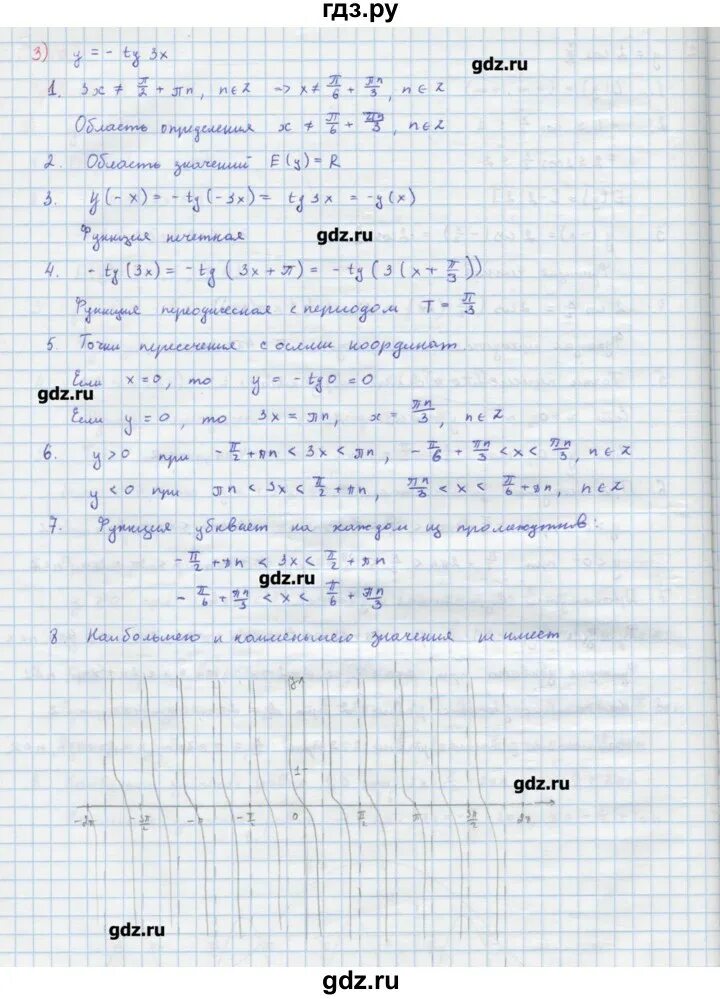 гдз.ру
3) y = - tg 3x
gdz.ru
1. 3x ≠ π/2 + πn, n∈Z → x ≠ π/6 + πn/3, n∈Z
Область определения x ≠ π/6 + πn/3, n∈Z
2. Область значений E(y) = R
3. y(-x) = -tg(-3x) = tg 3x = -y(x)
Функция нечетная
gdz.ru
4. -tg(3x) = -tg(3x + π) = -tg(3(x + π/3))
Функция периодическая с периодом T = π/3
5. Точки пересечения с осями координат.
Если x = 0, то y = - tg 0 = 0
gdz.ru
Если y = 0, то 3x = πn, x = πn/3, n∈Z
6. y > 0 при -π/2 + πn < 3x < πn, -π/6 + πn/3 < x < πn/3, n∈Z
y < 0 при πn < 3x < π/2 + πn, πn/3 < x < π/6 + πn, n∈Z
7. Функция убывает на каждом из промежутков:
-π/2 + πn < 3x < π/2 + πn
gdz.ru
-π/6 + πn/3 < x < π/6 + πn/3
8 Наибольшего и наименьшего значения не имеет
y
1
gdz.ru
-2π -3π/2 -π -π/2 0 π/2 π 3π/2 2π
gdz.ru
gdz.ru